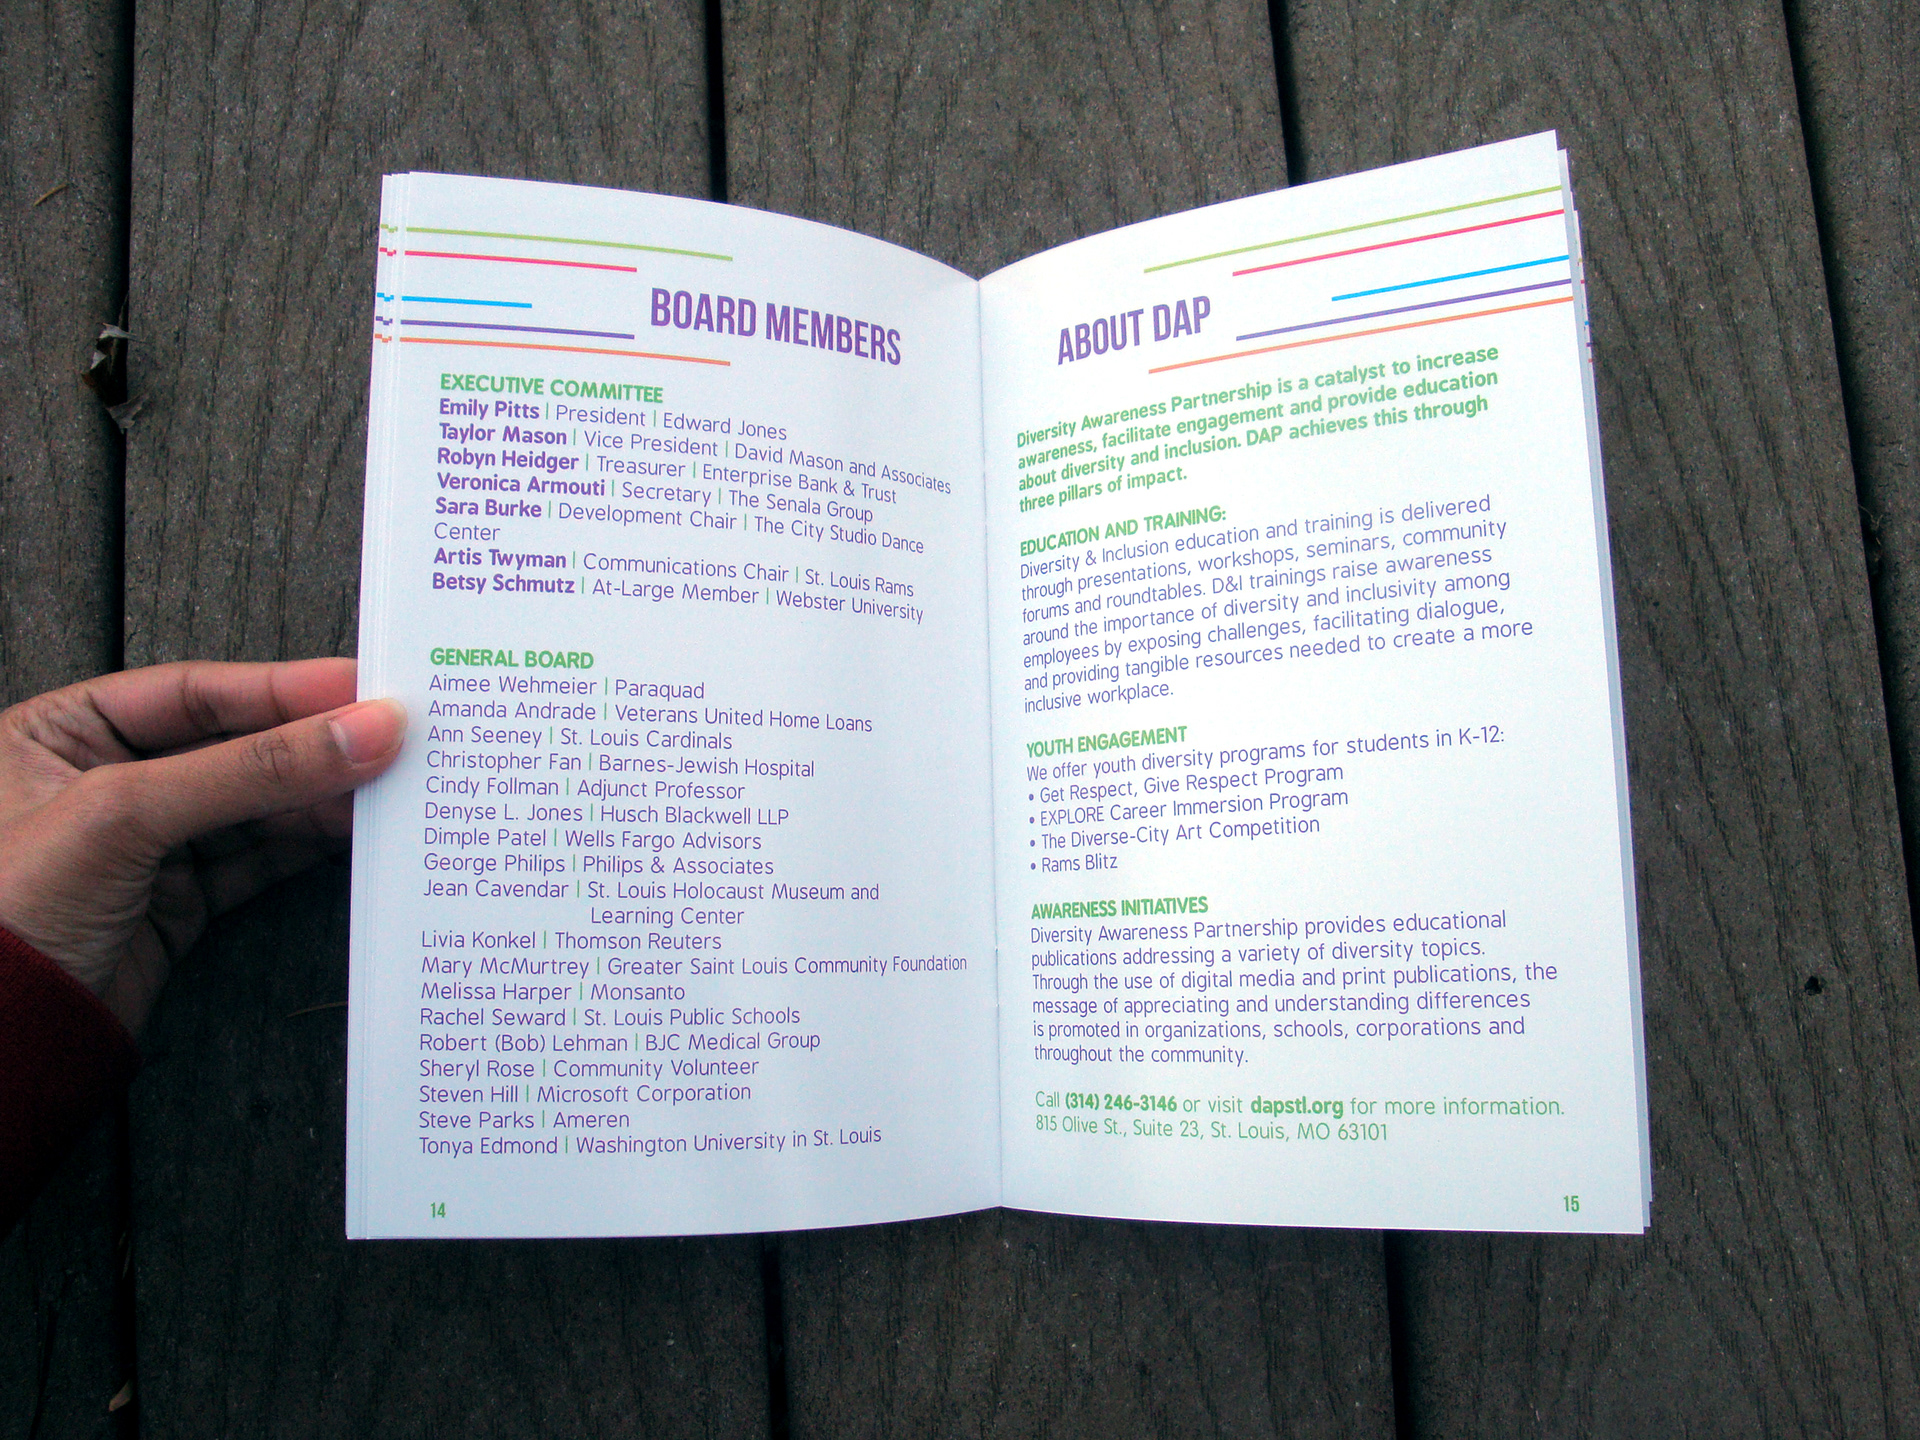 BOARD MEMBERS
EXECUTIVE COMMITTEE
Emily Pitts | President | Edward Jones
Taylor Mason | Vice President | David Mason and Associates
Robyn Heidger | Treasurer | Enterprise Bank & Trust
Veronica Armouti | Secretary | The Senala Group
Sara Burke | Development Chair | The City Studio Dance
Center
Artis Twyman | Communications Chair | St. Louis Rams
Betsy Schmutz | At-Large Member | Webster University
GENERAL BOARD
Aimee Wehmeier | Paraquad
Amanda Andrade | Veterans United Home Loans
Ann Seeney | St. Louis Cardinals
Christopher Fan | Barnes-Jewish Hospital
Cindy Follman | Adjunct Professor
Denyse L. Jones | Husch Blackwell LLP
Dimple Patel | Wells Fargo Advisors
George Philips | Philips & Associates
Jean Cavendar | St. Louis Holocaust Museum and
Learning Center
Livia Konkel | Thomson Reuters
Mary McMurtrey | Greater Saint Louis Community Foundation
Melissa Harper | Monsanto
Rachel Seward | St. Louis Public Schools
Robert (Bob) Lehman | BJC Medical Group
Sheryl Rose | Community Volunteer
Steven Hill | Microsoft Corporation
Steve Parks | Ameren
Tonya Edmond | Washington University in St. Louis
14
ABOUT DAP
Diversity Awareness Partnership is a catalyst to increase
awareness, facilitate engagement and provide education
about diversity and inclusion. DAP achieves this through
three pillars of impact.
EDUCATION AND TRAINING:
Diversity & Inclusion education and training is delivered
through presentations, workshops, seminars, community
forums and roundtables. D&I trainings raise awareness
around the importance of diversity and inclusivity among
employees by exposing challenges, facilitating dialogue,
and providing tangible resources needed to create a more
inclusive workplace.
YOUTH ENGAGEMENT
We offer youth diversity programs for students in K-12:
• Get Respect, Give Respect Program
• EXPLORE Career Immersion Program
• The Diverse-City Art Competition
• Rams Blitz
AWARENESS INITIATIVES
Diversity Awareness Partnership provides educational
publications addressing a variety of diversity topics.
Through the use of digital media and print publications, the
message of appreciating and understanding differences
is promoted in organizations, schools, corporations and
throughout the community.
Call (314) 246-3146 or visit dapstl.org for more information.
815 Olive St., Suite 23, St. Louis, MO 63101
15